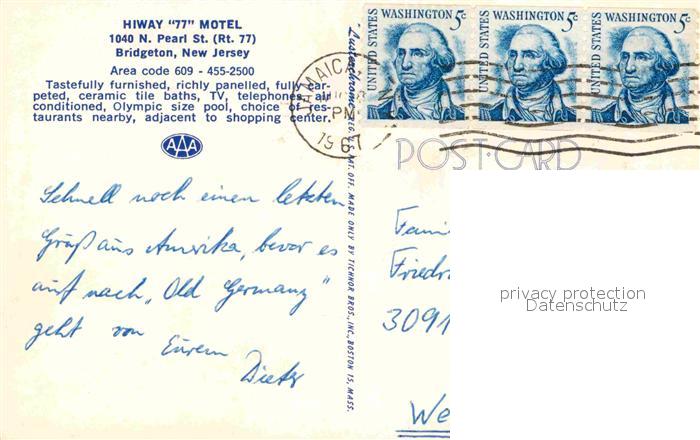 HIWAY "77" MOTEL
1040 N. Pearl St. (Rt. 77)
Bridgeton, New Jersey
Area code 609 - 455-2500
Tastefully furnished, richly panelled, fully car-
peted, ceramic tile baths, TV, telephones, air
conditioned, Olympic size pool, choice of res-
taurants nearby, adjacent to shopping center.
AAA
Schnell noch einen letzten
Gruß aus Amerika, bevor es
auf nach „Old Germany"
geht von
Eurem
Dieter
"Lusterchrome" REG. U.S. PAT. OFF. MADE ONLY BY TICHNOR BROS., INC., BOSTON 15, MASS.
JAMAICA
PM
1967
UNITED STATES WASHINGTON 5c
UNITED STATES WASHINGTON 5c
UNITED STATES WASHINGTON 5c
POST CARD
Fami
Friedr
3091
We
privacy protection
Datenschutz